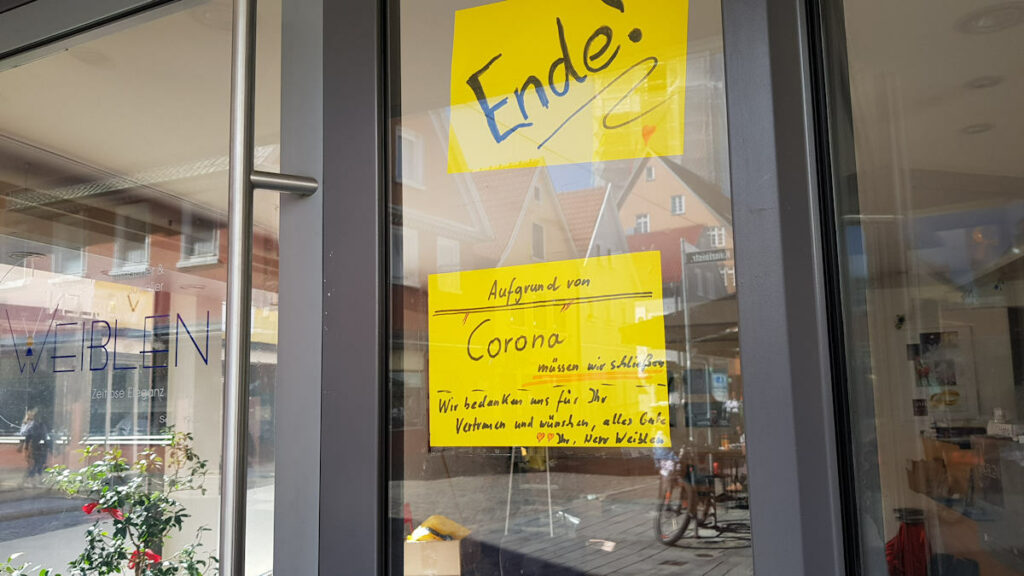 Ende!
Aufgrund von
Corona
müssen wir schließen
Wir bedanken uns für Ihr
Vertrauen und wünschen, alles Gute
Ihr, Herr Weiblen
WEIBLEN
Zeitlose Eleganz